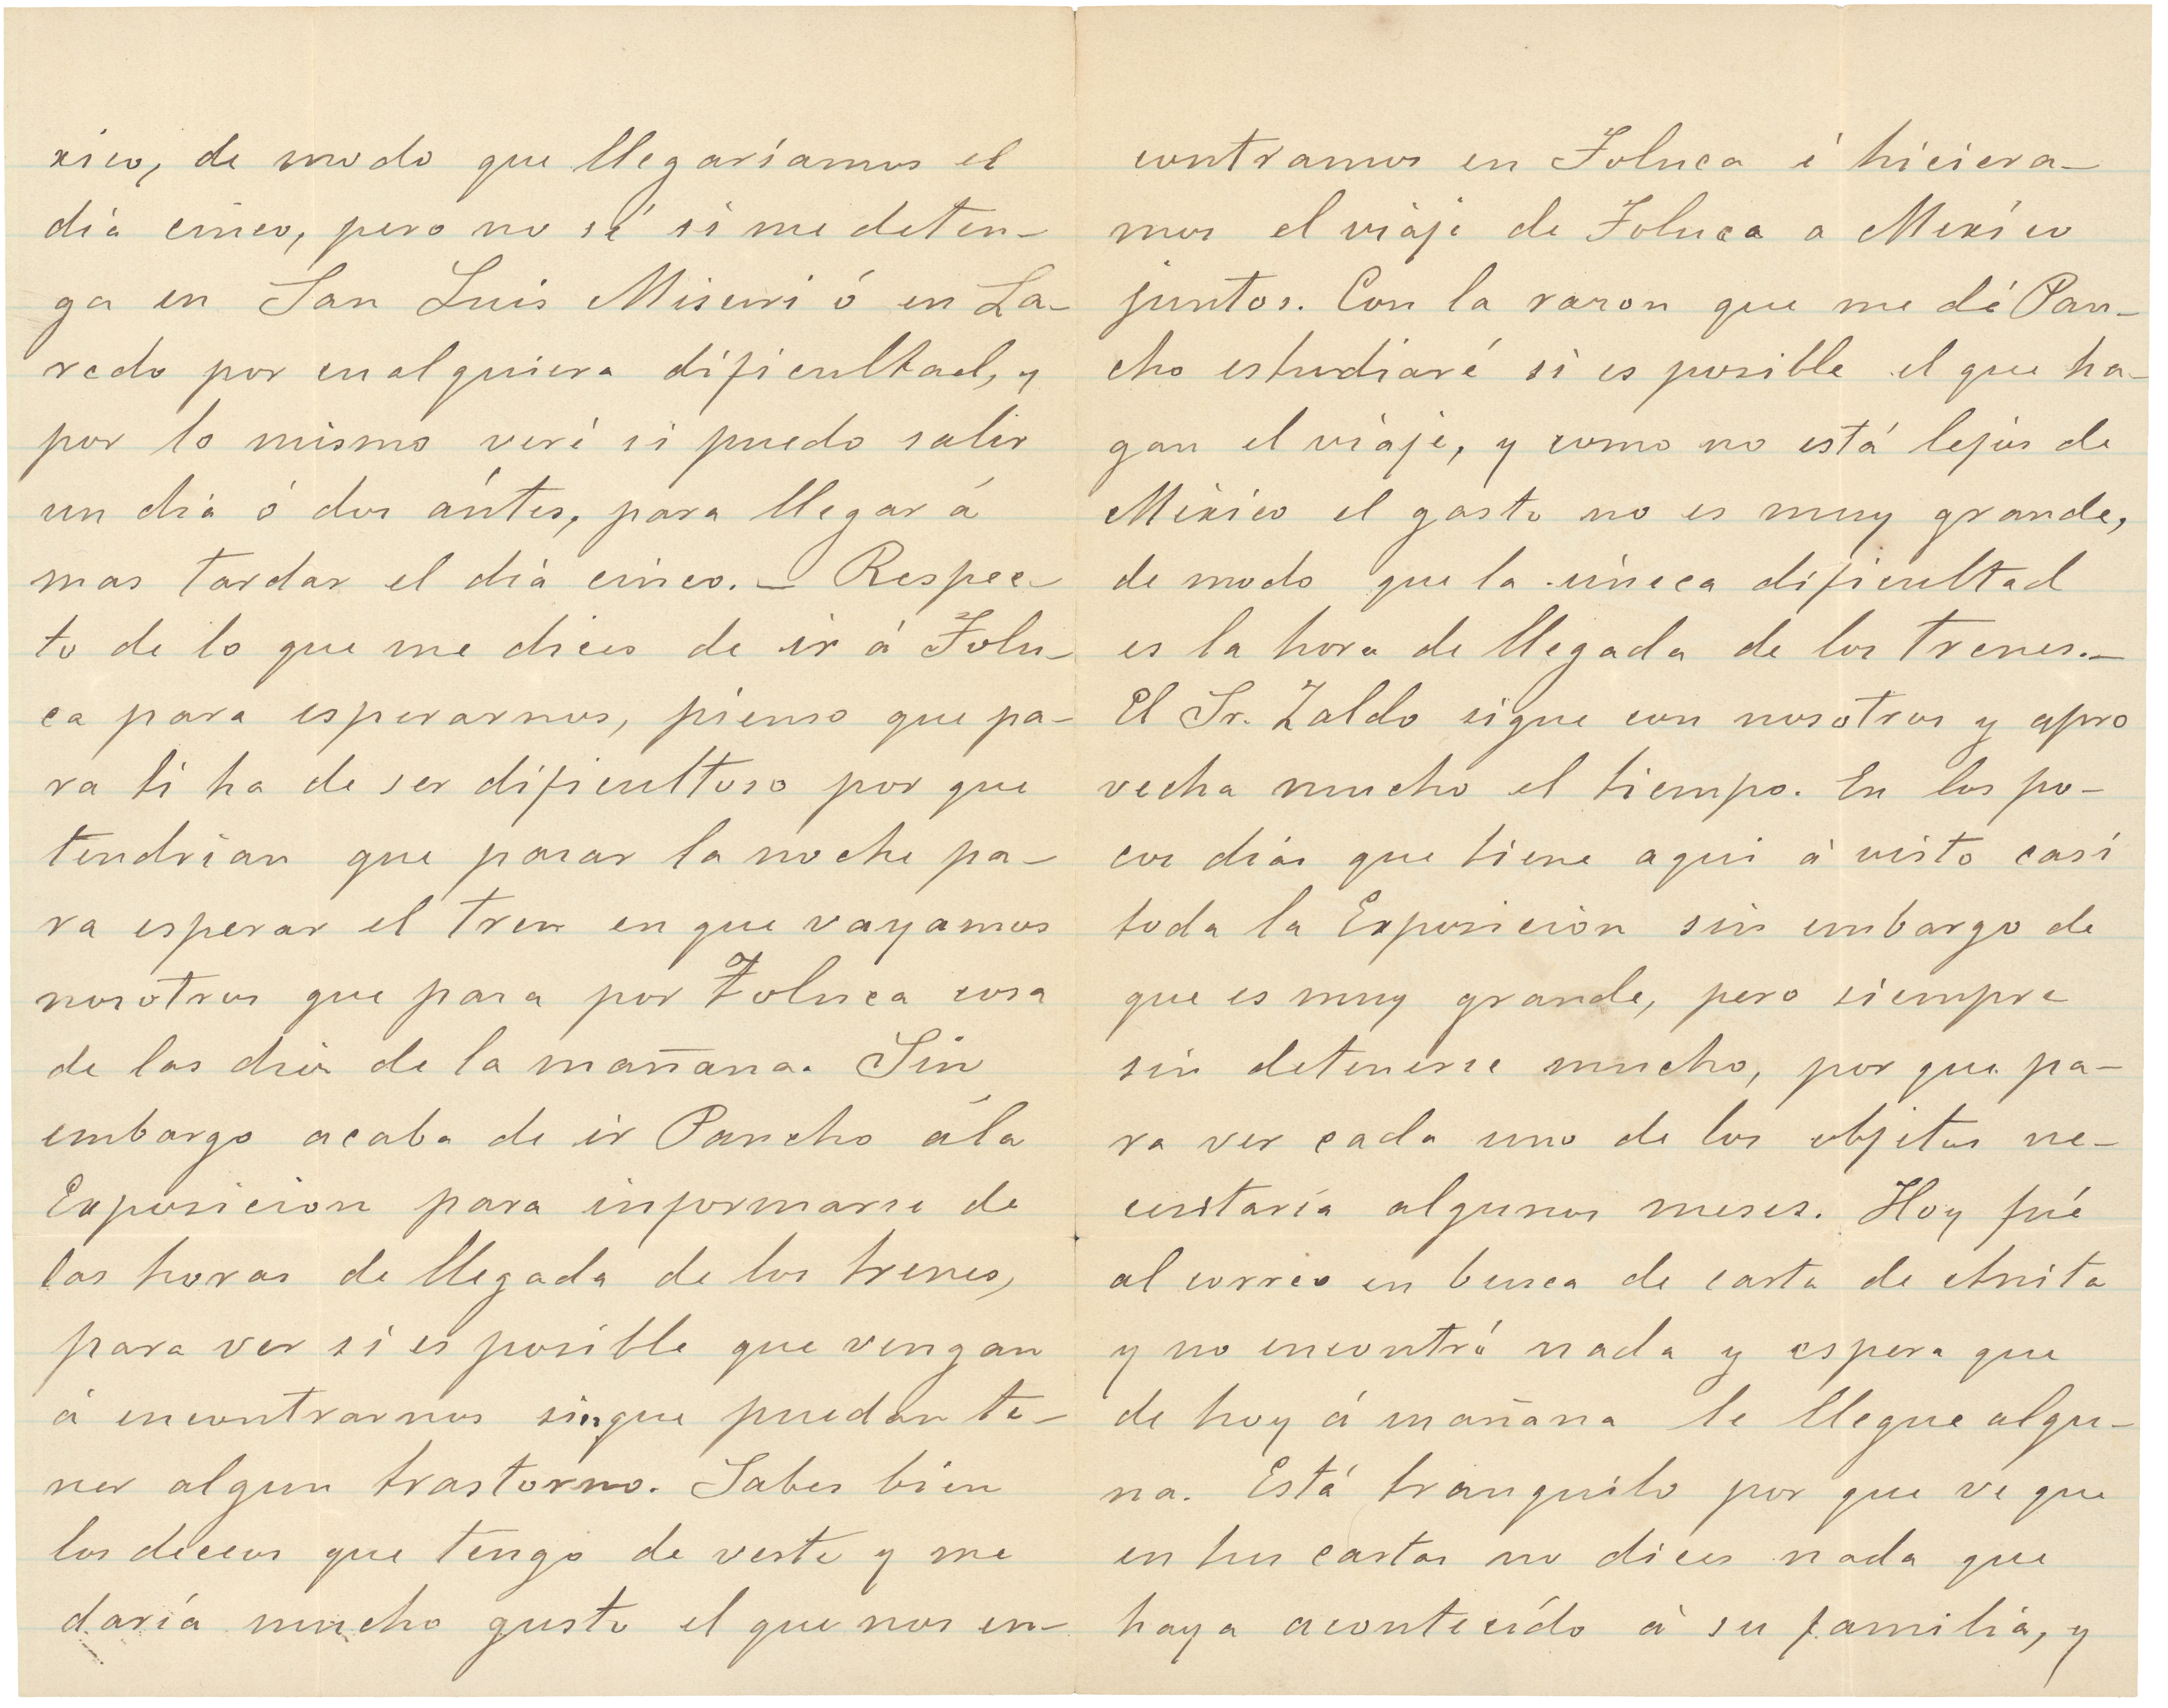 xico, de modo que llegaríamos el
día cinco, pero no sé si me deten-
ga en San Luis Misuri ó en La-
redo por cualquiera dificultad, y
por lo mismo veré si puedo salir
un día ó dos ántes, para llegar á
mas tardar el día cinco.- Respec-
to de lo que me dices de ir á Tolu-
ca para esperarnos, pienso que pa-
ra ti ha de ser dificultoso por que
tendrían que pasar la noche pa-
ra esperar el tren en que vayamos
nosotros que pasa por Toluca cosa
de las diez de la mañana. Sin
embargo acaba de ir Pancho á la
Exposicion para informarse de
las horas de llegada de los trenes,
para ver si es posible que vengan
á encontrarnos sin que puedan te-
ner algun trastorno. Sabes bien
los deceos que tengo de verte y me
daría mucho gusto el que nos en-
contramos en Toluca é hiciera-
mos el viaje de Toluca a México
juntos. Con la razon que me dé Pan-
cho estudiaré si es posible el que ha-
gan el viaje, y como no está lejos de
México el gasto no es muy grande,
de modo que la única dificultad
es la hora de llegada de los trenes.-
El Sr. Zaldo sigue con nosotros y apro
vecha mucho el tiempo. En los po-
cos días que tiene aqui á visto casi
toda la Exposicion sin embargo de
que es muy grande, pero siempre
sin detenerse mucho, por que pa-
ra ver cada uno de los objetos ne-
cesitaría algunos meses. Hoy fué
al correo en busca de carta de Anita
y no encontró nada y espera que
de hoy á mañana le llegue algu-
na. Está tranquilo por que ve que
en tus cartas no dices nada que
haya acontecído á su familia, y